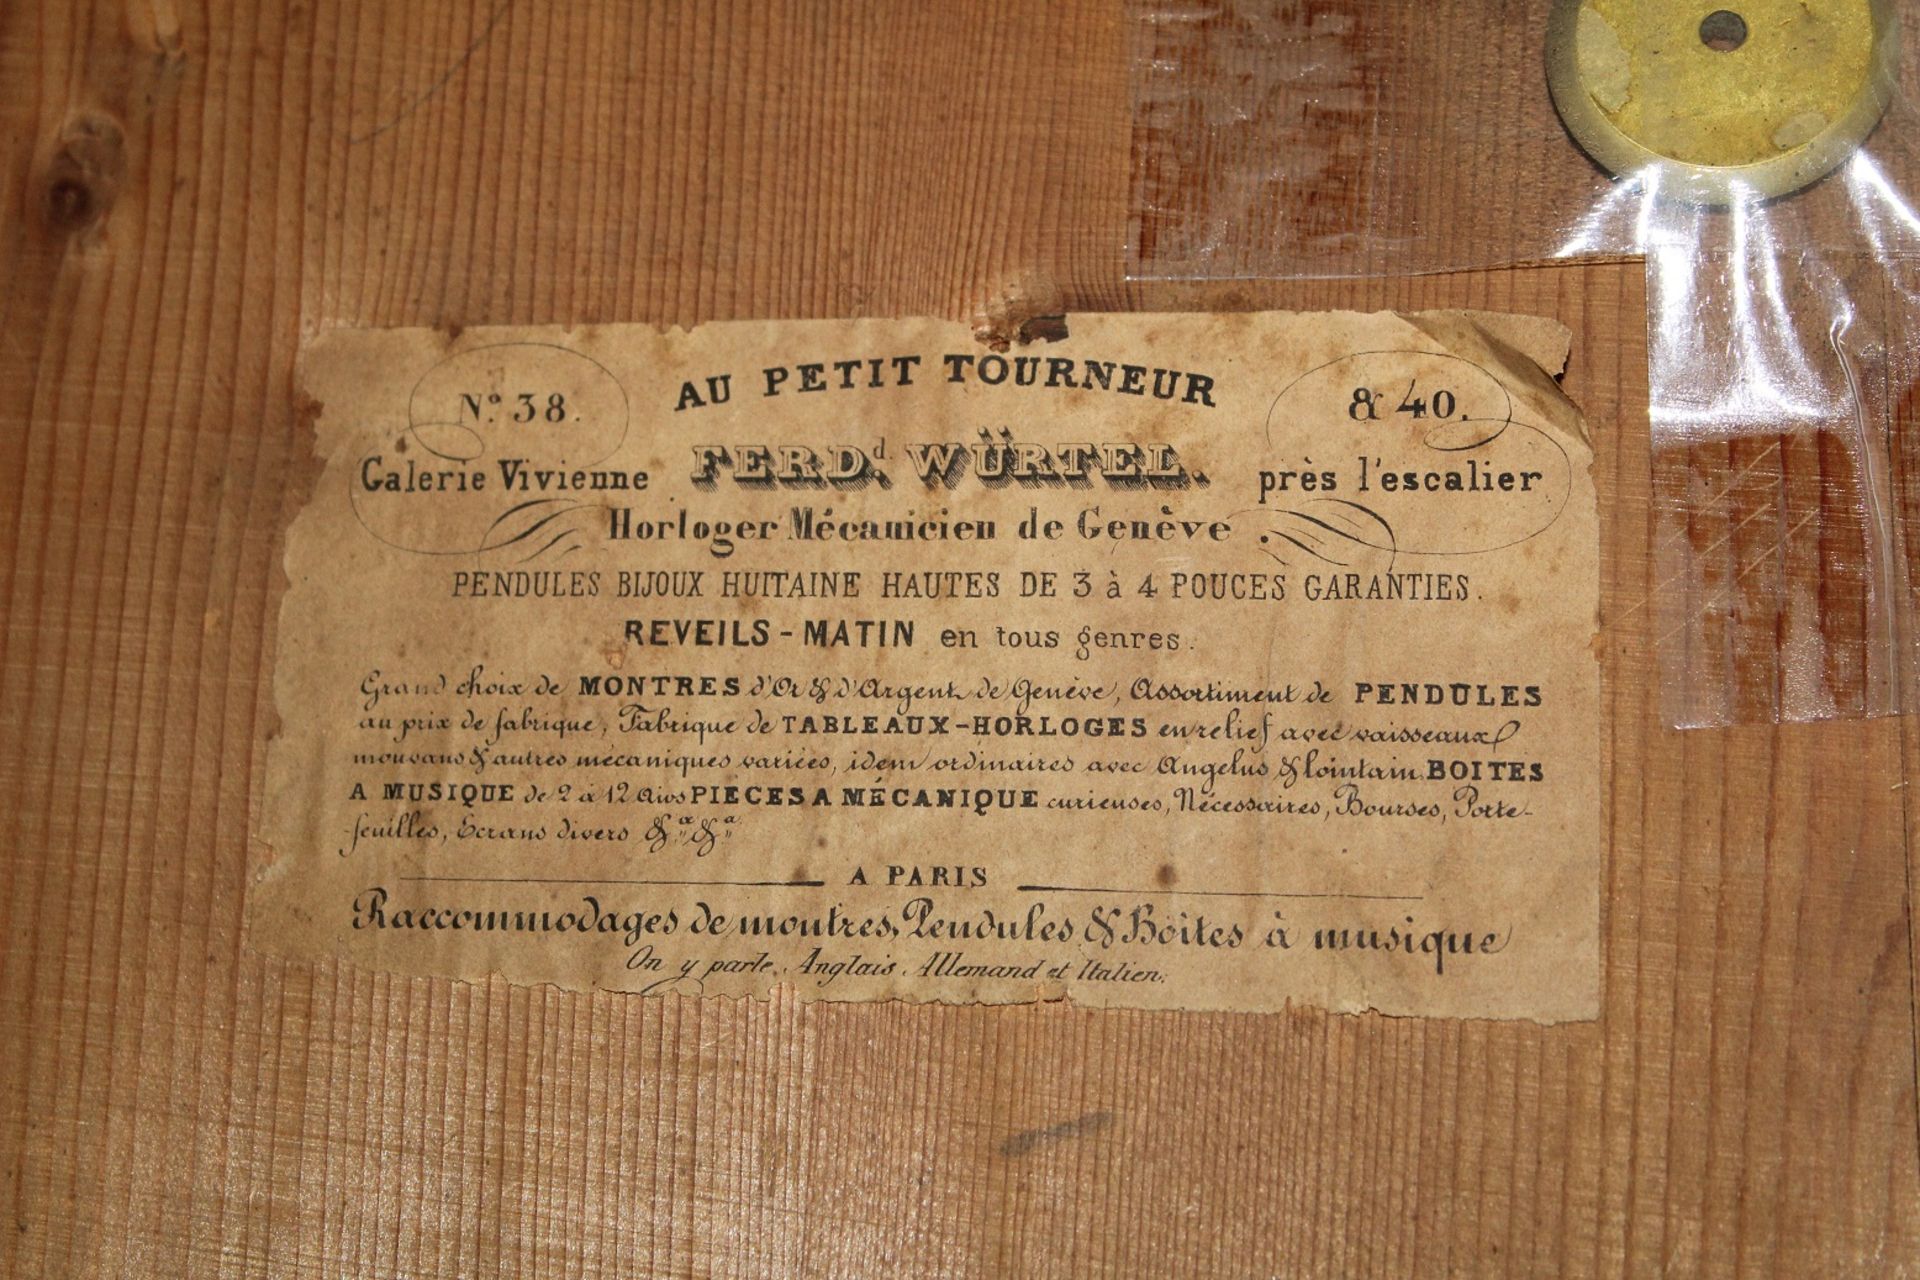 AU PETIT TOURNEUR
Nº 38. & 40.
Galerie Vivienne FERDd. WÜRTEL. près l'escalier
Horloger Mécanicien de Genève.
PENDULES BIJOUX HUITAINE HAUTES DE 3 à 4 POUCES GARANTIES.
REVEILS-MATIN en tous genres.
Grand choix de MONTRES d'Or & d'Argent de Genève, Assortiment de PENDULES
au prix de fabrique, Fabrique de TABLEAUX-HORLOGES en relief avec vaisseaux
mouvans & autres mécaniques variées, idem ordinaires avec Angelus & lointain BOITES
A MUSIQUE de 2 à 12 Airs PIÈCES A MÉCANIQUE curieuses, Nécessaires, Bourses, Porte-
feuilles, Ecrans divers &a &a
A PARIS
Raccommodages de montres, Pendules & Boites à musique
On y parle Anglais, Allemand et Italien.